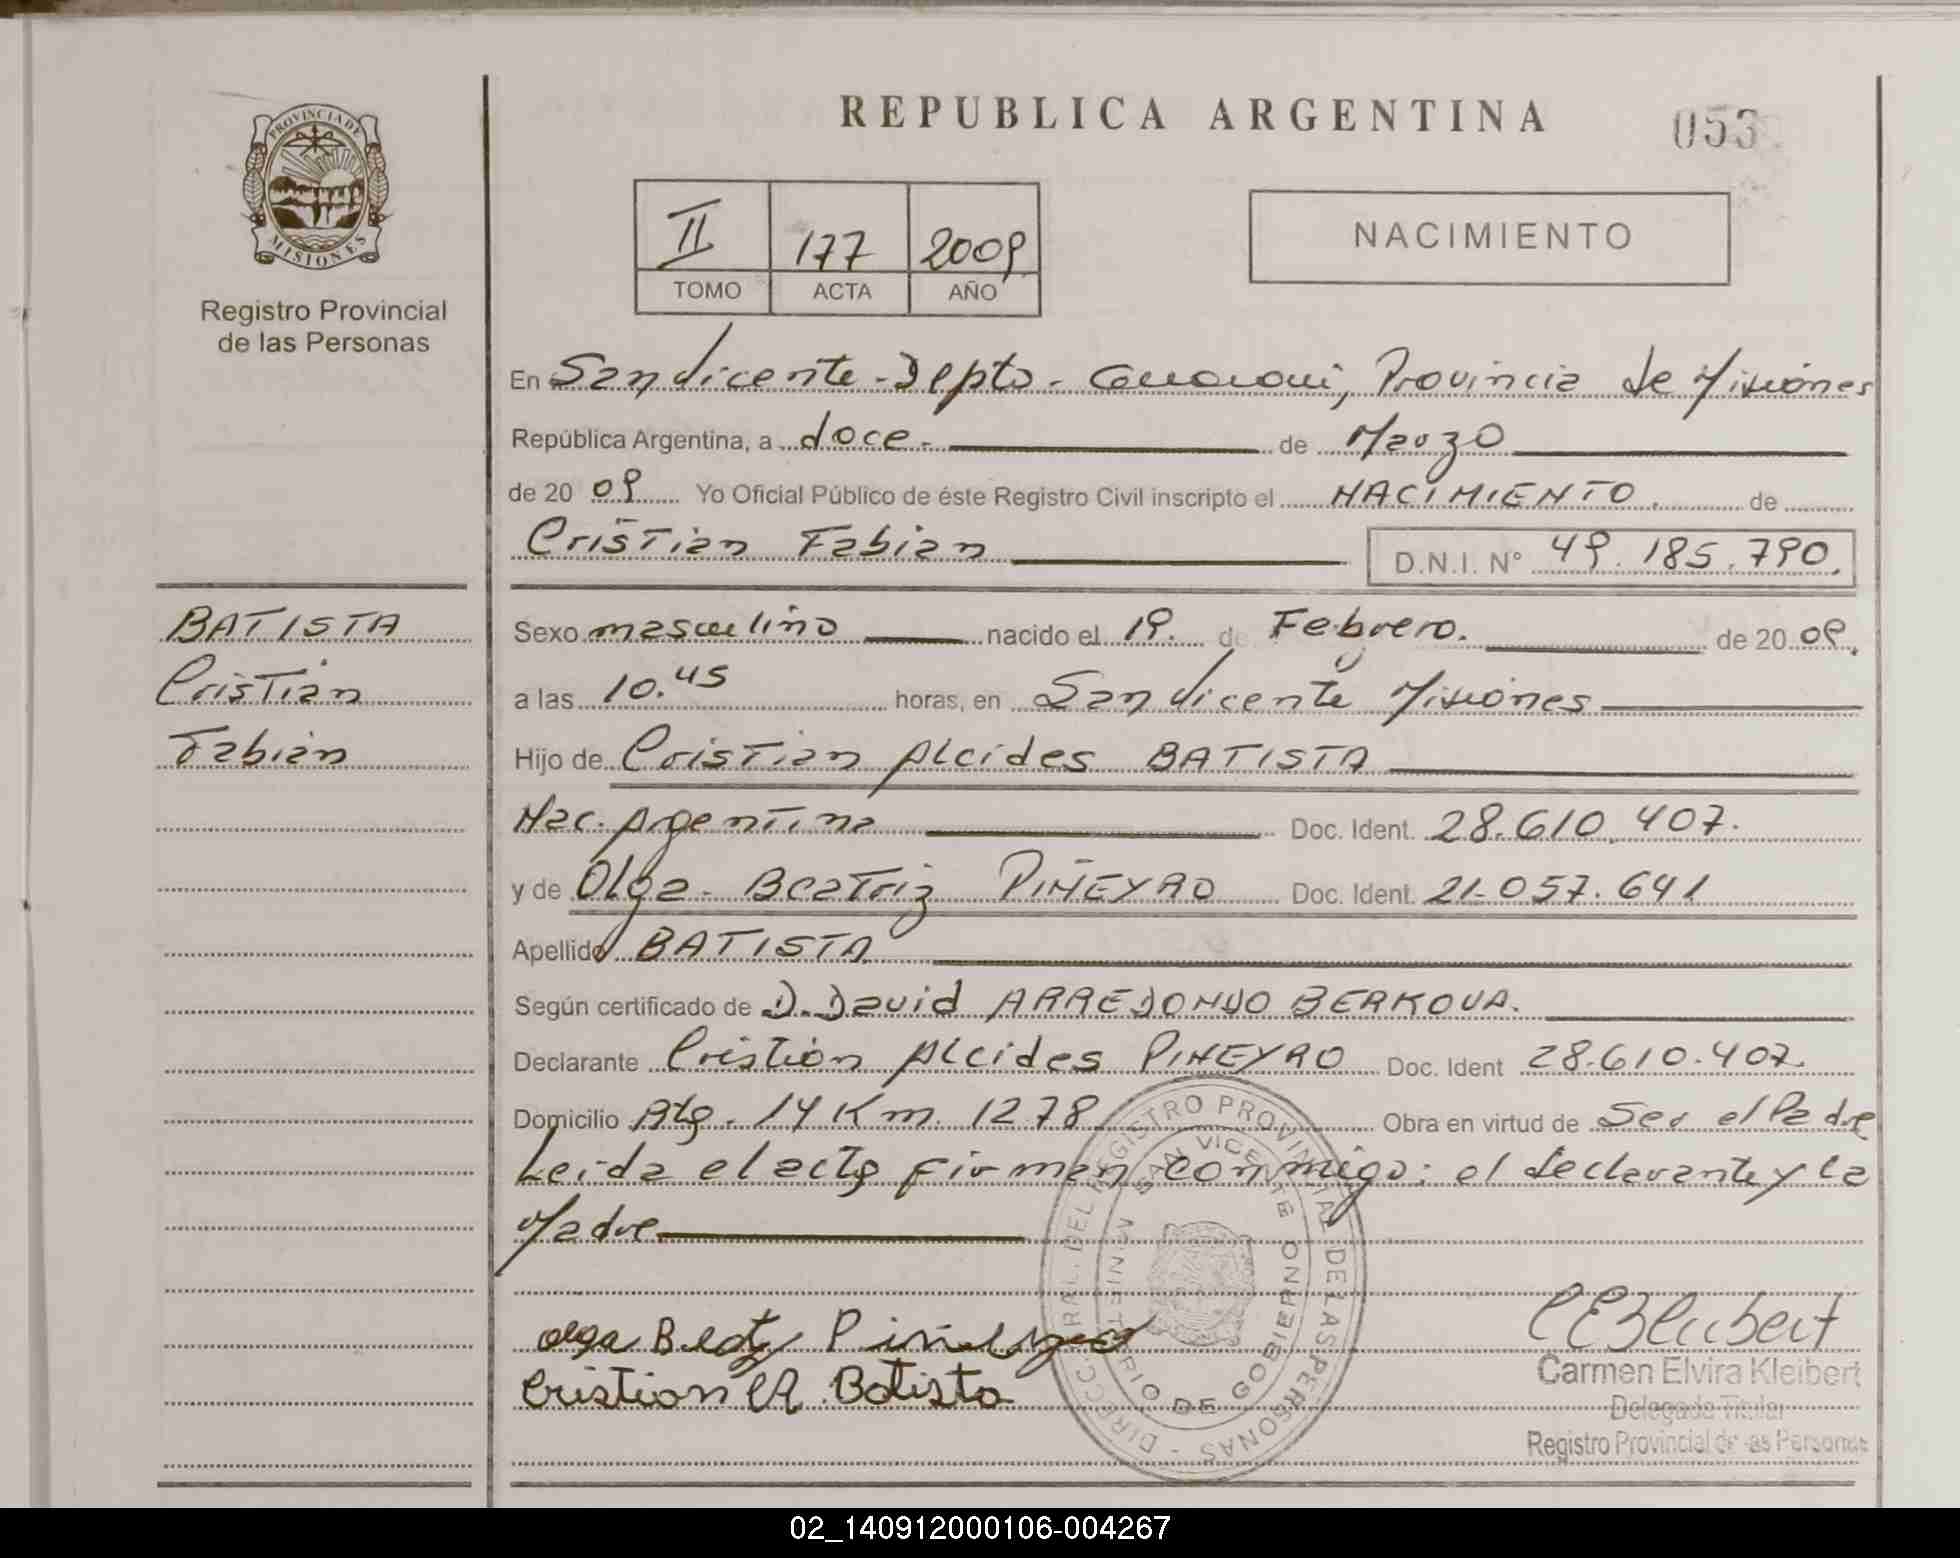 REPUBLICA ARGENTINA
053
PROVINCIA DE
MISIONES
Registro Provincial
de las Personas
II 177 2009
TOMO ACTA AÑO
NACIMIENTO
En San Vicente - Depto - Guarani, Provincia de Misiones
República Argentina, a doce. de Marzo
de 20 09 Yo Oficial Público de éste Registro Civil inscripto el NACIMIENTO. de
Cristian Fabian D.N.I. Nº 49.185.790.
BATISTA
Cristian
Fabian
Sexo masculino nacido el 19. de Febrero. de 20 09.
a las 10.45 horas, en San Vicente Misiones
Hijo de Cristian Alcides BATISTA
Nac. Argentina Doc. Ident. 28.610.407.
y de Olga - Beatriz PIÑEYRO Doc. Ident. 21.057.641
Apellido BATISTA
Según certificado de D. David ARREDONDO BERKOVA.
Declarante Cristian Alcides PIÑEYRO Doc. Ident 28.610.407.
Domicilio Rta. 14 Km. 1278 Obra en virtud de Ser el Padre
Leida el acta firman conmigo: el declarante y la
Madre
DIRECC. GRAL. DEL REGISTRO PROVINCIAL DE LAS PERSONAS -
SAN VICENTE
MINISTERIO DE GOBIERNO
Olga Beatz Piñeyro
Cristian A. Batista
CEKleibert
Carmen Elvira Kleibert
Delegada Titular
Registro Provincial de las Personas
02_140912000106-004267